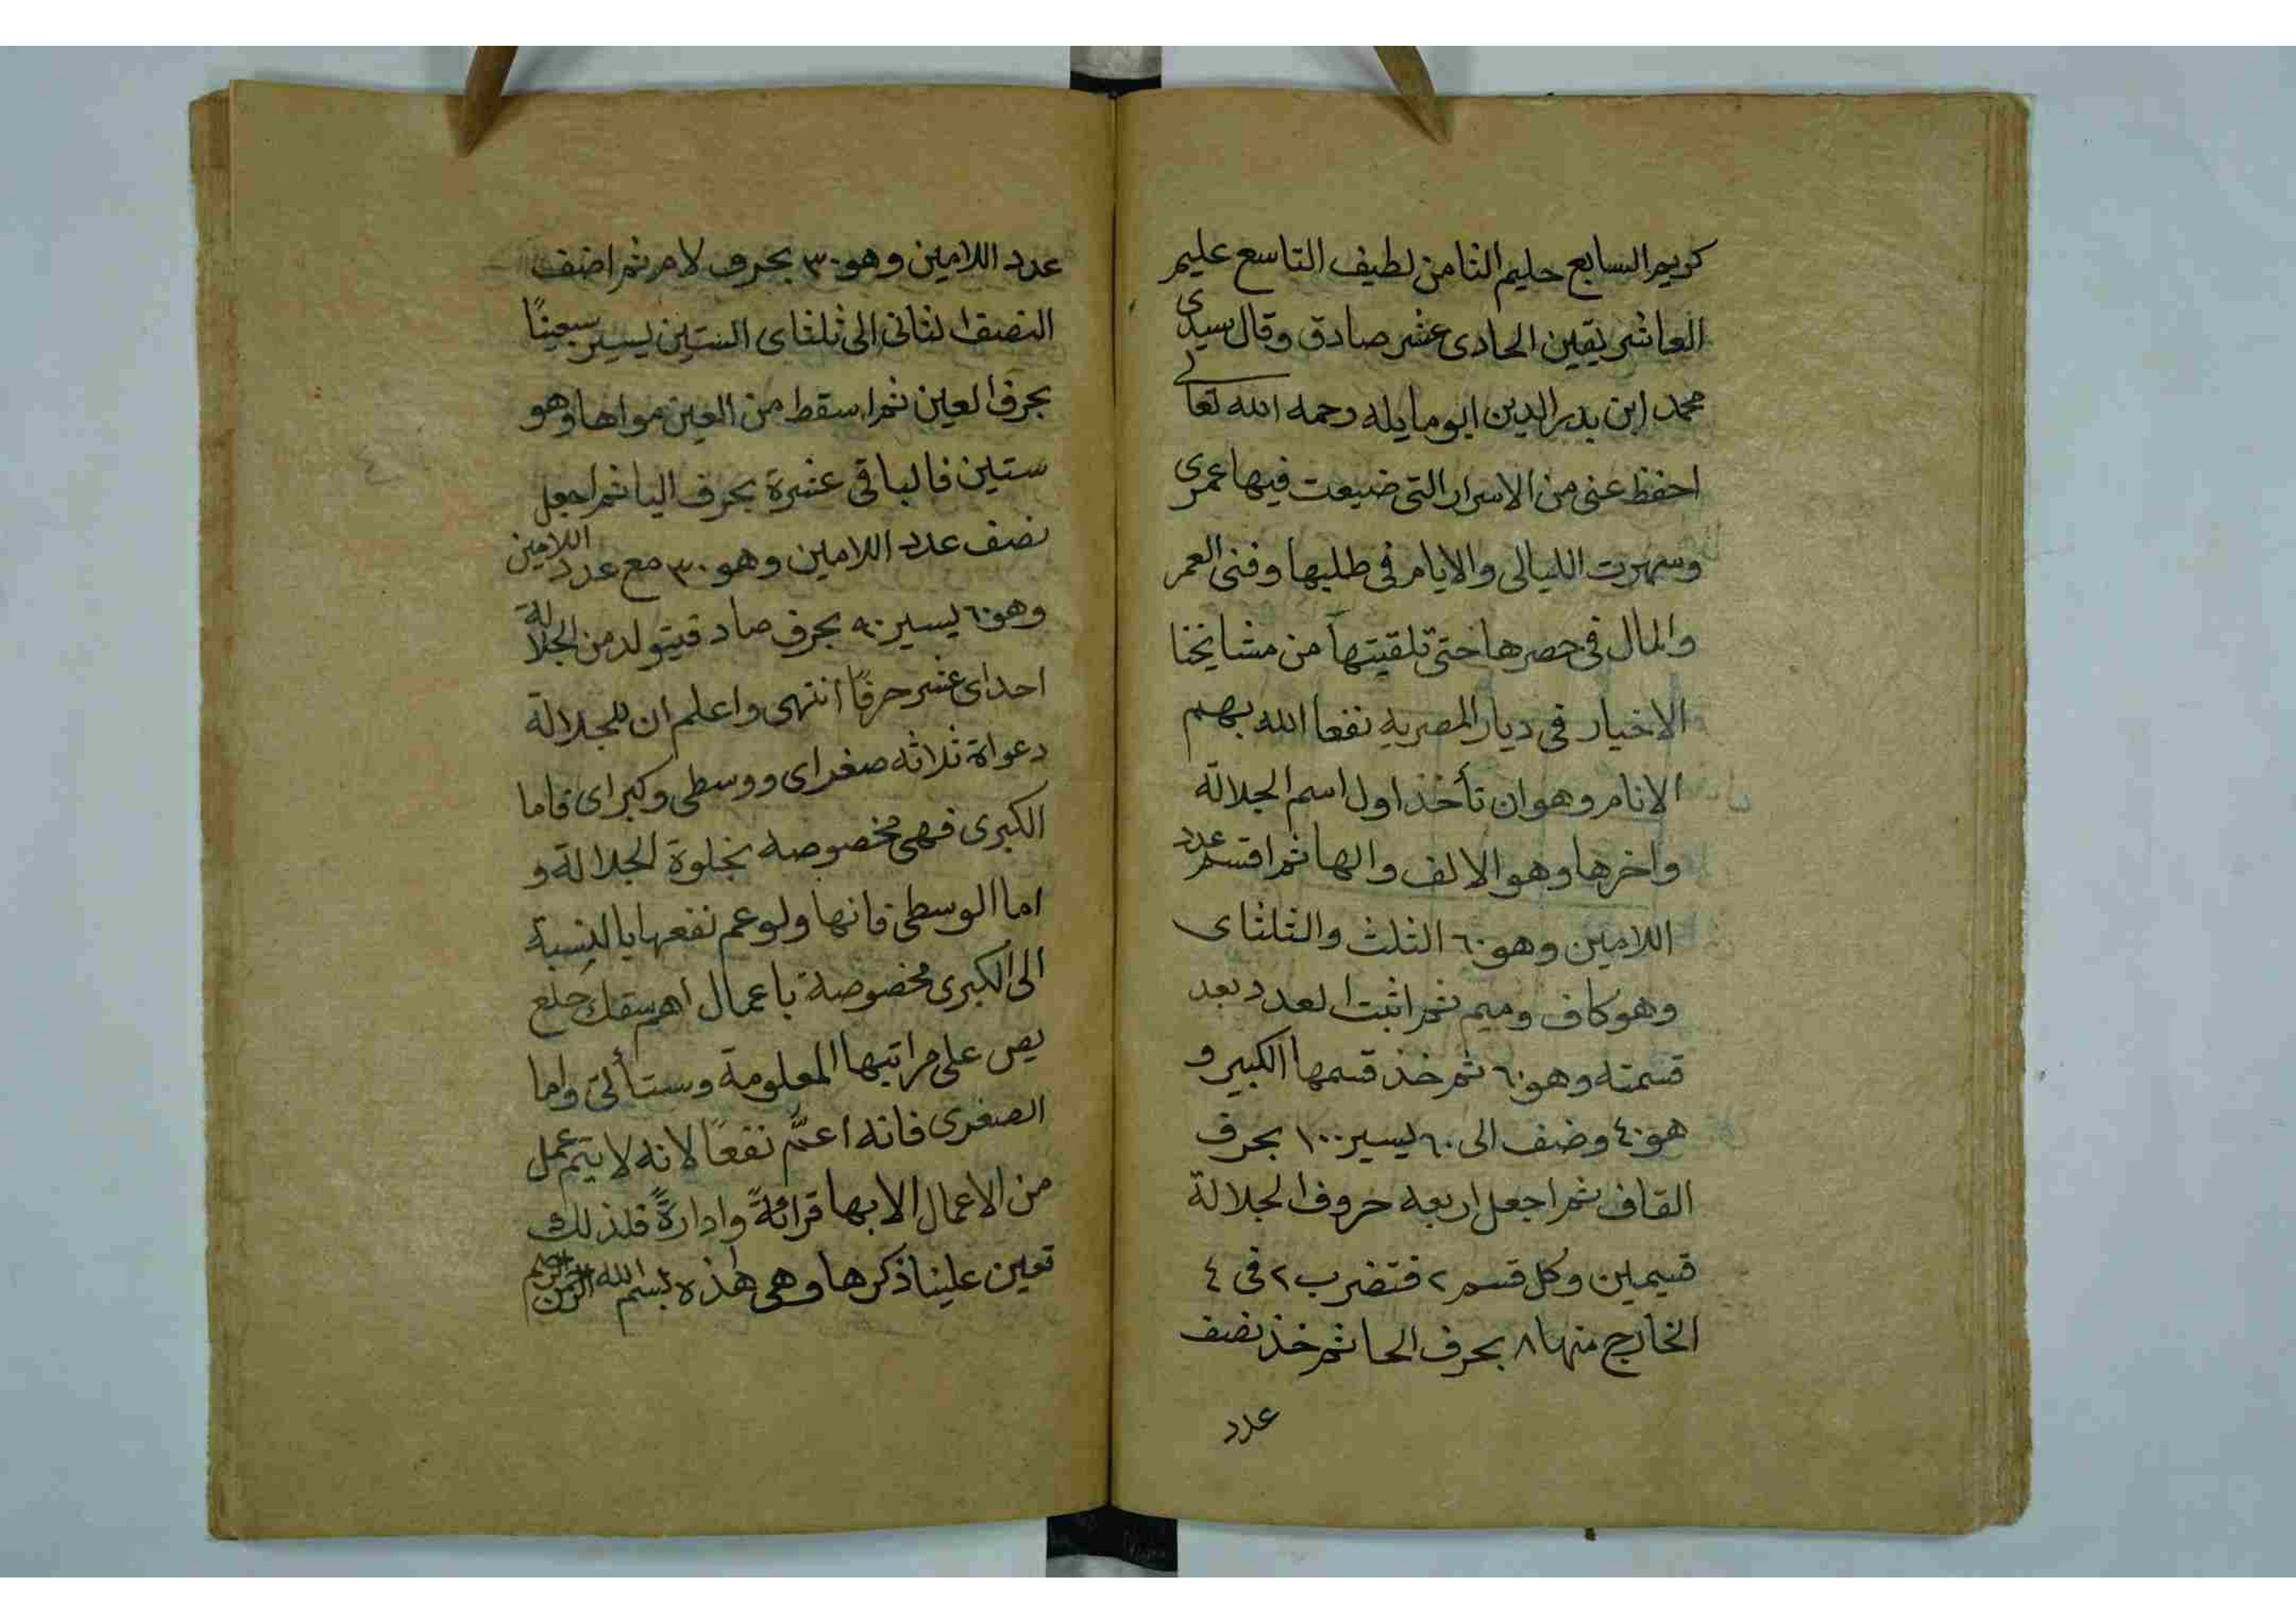 كريم السابع حليم الثامن لطيف التاسع عليم
العاشر يقين الحادى عشر صادق وقال سيدى
محمد ابن بدر الدين ابو مايله رحمه الله تعالى
احفظ عنى من الاسرار التى ضيعت فيها عمرى
وسهرت الليالى والايام فى طلبها وفنى العمر
والمال فى حصرها حتى تلقيتها من مشايخنا
الاخيار فى ديار المصريه نفعا الله بهم
الانام وهو ان تأخذ اول اسم الجلالة
واخرها وهو الالف والها ثم اقسم عدد
اللامين وهو ٦٠ الثلث والثلثاى
وهو كاف وميم ثم اثبت العدد بعد
قسمته وهو ٦٠ ثم خذ قسمها الكبير و
هو ٤٠ وضف الى ٦٠ يسير ١٠٠ بحرف
القاف ثم اجعل اربعه حروف الجلالة
قسيمين وكل قسم ٢ فتضرب ٢ فى ٤
الخارج منها ٨ بحرف الحا ثم خذ نصف
عدد
عدد اللامين وهو ٣٠ بحرف لام ثم اضف
النصف الثانى الى ثلثاى الستين يسير سبعينًا
بحرف العين ثم اسقط من العين مواها وهو
ستين فالباقى عشرة بحرف اليا ثم اجعل
نصف عدد اللامين وهو ٣٠ مع عدد اللامين
وهو ٦٠ يسير ٩٠ بحرف صاد فيتولد من الجلالة
احداى عشر حرفًا انتهى واعلم ان للجلالة
دعواة ثلاثه صغراى ووسطى وكبراى فاما
الكبرى فهى مخصوصه بخلوة الجلالة و
اما الوسطى فانها ولو عم نفعها بالنسبة
الى الكبرى مخصوصة باعمال اهم سقك حلع
يص على مراتبها المعلومة وستأتى واما
الصغرى فانه اعمّ نفعًا لانه لا يتم عمل
من الاعمال الا بها قرائةً وادارةً فلذلك
تعين علينا ذكرها وهى هذه بسم الله الرحمن الرحيم